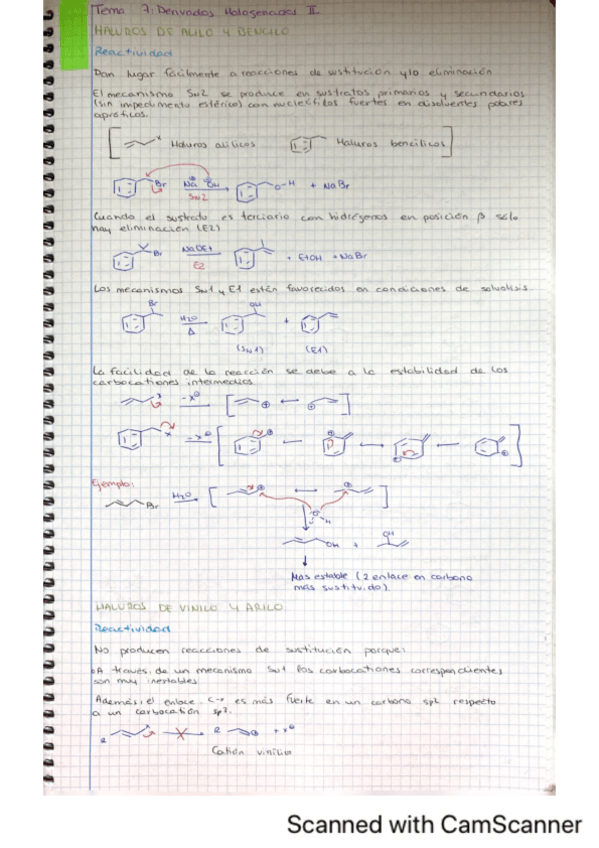 Tema 7: Derivados Halogenados II
HALUROS DE ALILO Y BENCILO
Reactividad
Dan lugar fácilmente a reacciones de sustitución y/o eliminación
El mecanismo SN2 se produce en sustratos primarios y secundarios
(sin impedimento estérico) con nucleófilos fuertes en disolventes polares
apróticos.
x Haluros alílicos x Haluros bencílicos
Br Na SN2 O-H + NaBr
Cuando el sustrado es terciario con hidrógenos en posición β solo
hay eliminación (E2)
Br NaOEt E2 + EtOH + NaBr
Los mecanismos SN1 y E1 están favorecidos en condiciones de solvolisis.
Br H2O Δ OH +
(SN1) (E1)
La facilidad de la reacción se debe a la estabilidad de los
carbocationes intermedios
x -x⊖ ⊕ ⊕
x -x⊖ ⊕ ⊕ ⊕ ⊕
Ejemplo:
Br H2O ⊕ ⊕
H H
OH + OH
Mas estable (2 enlace en carbono
más sustituido).
HALUROS DE VINILO Y ARILO
Reactividad
No producen reacciones de sustitución porque:
A través de un mecanismo SN1 los carbocationes correspondientes
son muy inestables
Además, el enlace C-x es más fuerte en un carbono sp2 respecto
a un carbocatión sp3.
R x R ⊕ + x⊖
Catión vinílico
Scanned with CamScanner